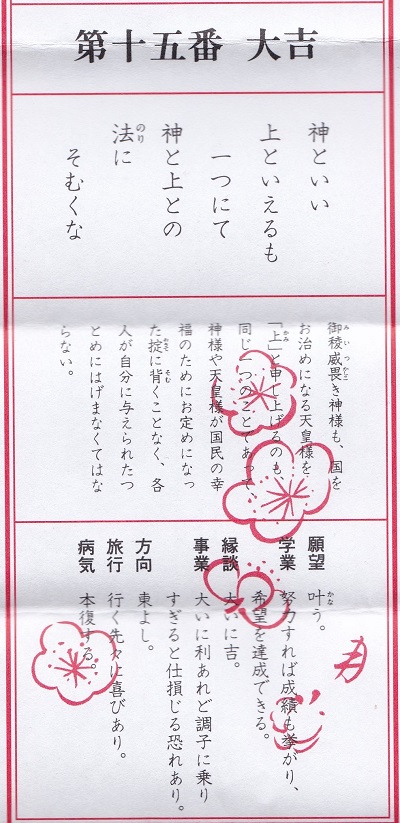 第十五番 大吉
神といい
上といえるも
一つにて
神と上との
法に
のり
そむくな
御稜威畏き神様も、国を
みいつかしこ
お治めになる天皇様を
「上」と申し上げるのも、
かみ
同じ一つのことであって、
神様や天皇様が国民の幸
福のためにお定めになっ
た掟に背くことなく、各
おきて そむ
人が自分に与えられたつ
とめにはげまなくてはな
らない。
願望 叶う。
かな
学業 努力すれば成績も挙がり、
希望を達成できる。
縁談 大いに吉。
事業 大いに利あれど調子に乗り
すぎると仕損じる恐れあり。
方向 東よし。
旅行 行く先々に喜びあり。
病気 本復する。